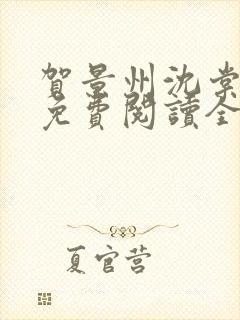 賀景州沈棠
免費閱讀全
夏官营